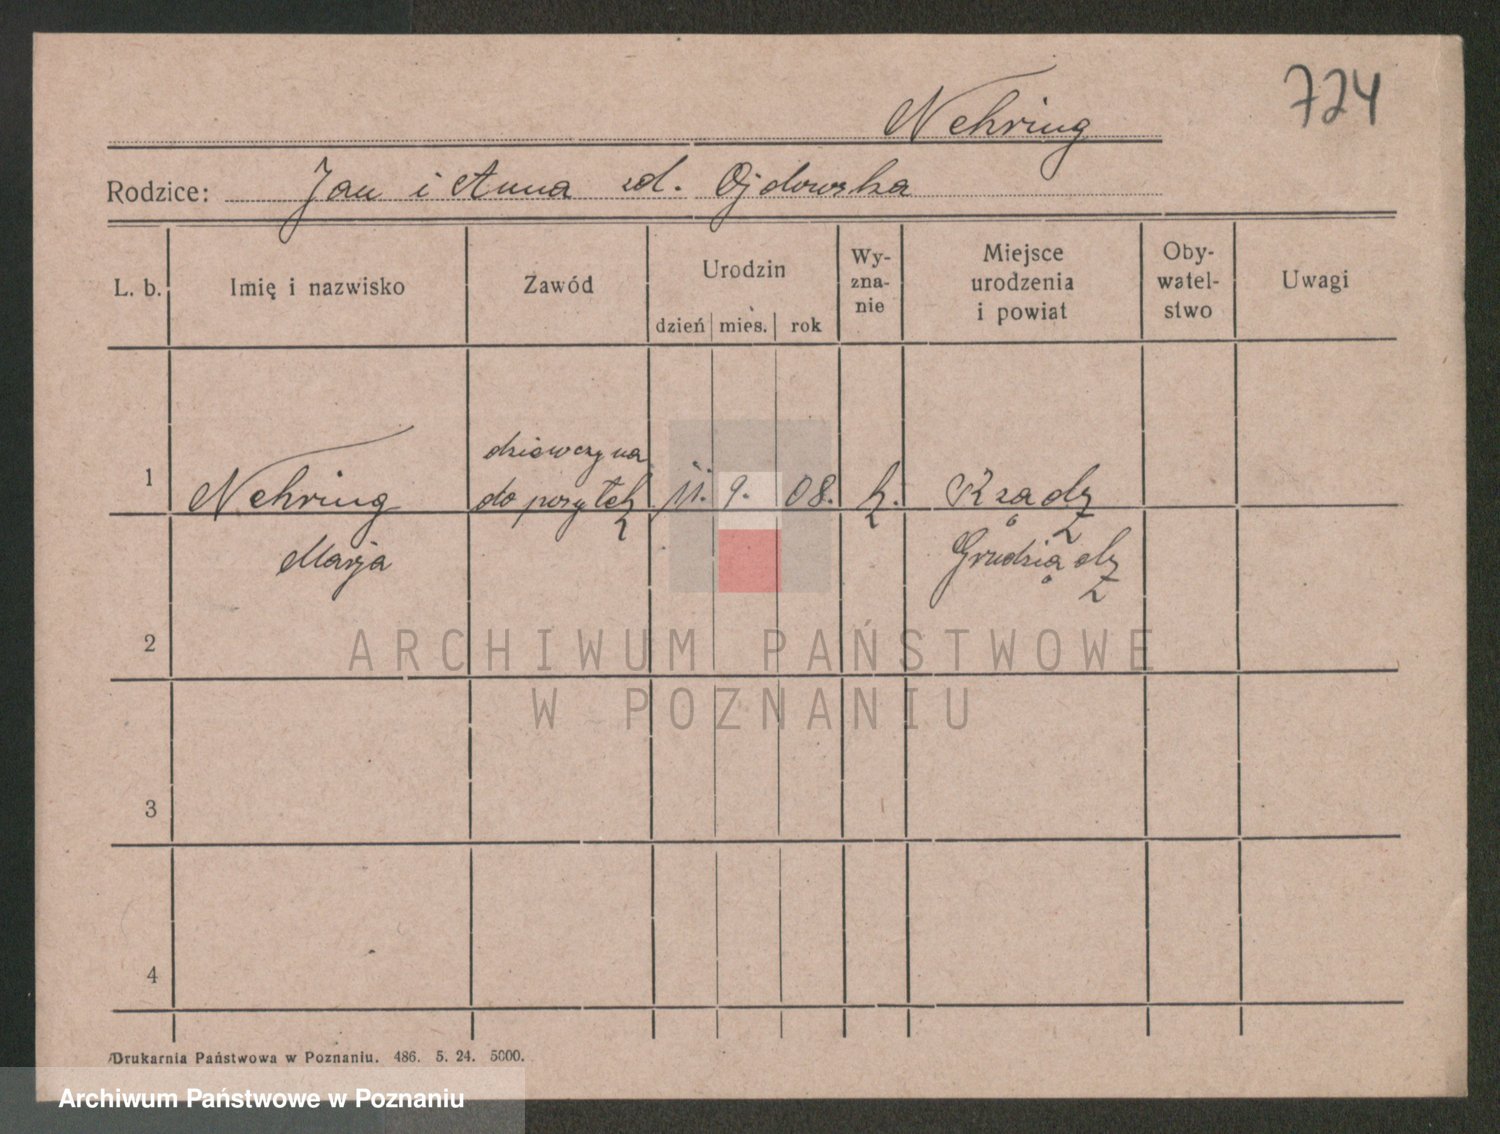 724
Nehring
Rodzice: Jan i Anna zd. Ojdowska
L. b. Imię i nazwisko Zawód Urodzin dzień mies. rok Wy-zna-nie Miejsce urodzenia i powiat Oby-watel-stwo Uwagi
1 Nehring Marja dziewczyna do posyłek 11. 9. 08. k. Rządz Grudziądz
2
3
4
Drukarnia Państwowa w Poznaniu. 486. 5. 24. 5000.
ARCHIWUM PAŃSTWOWE
W POZNANIU
Archiwum Państwowe w Poznaniu